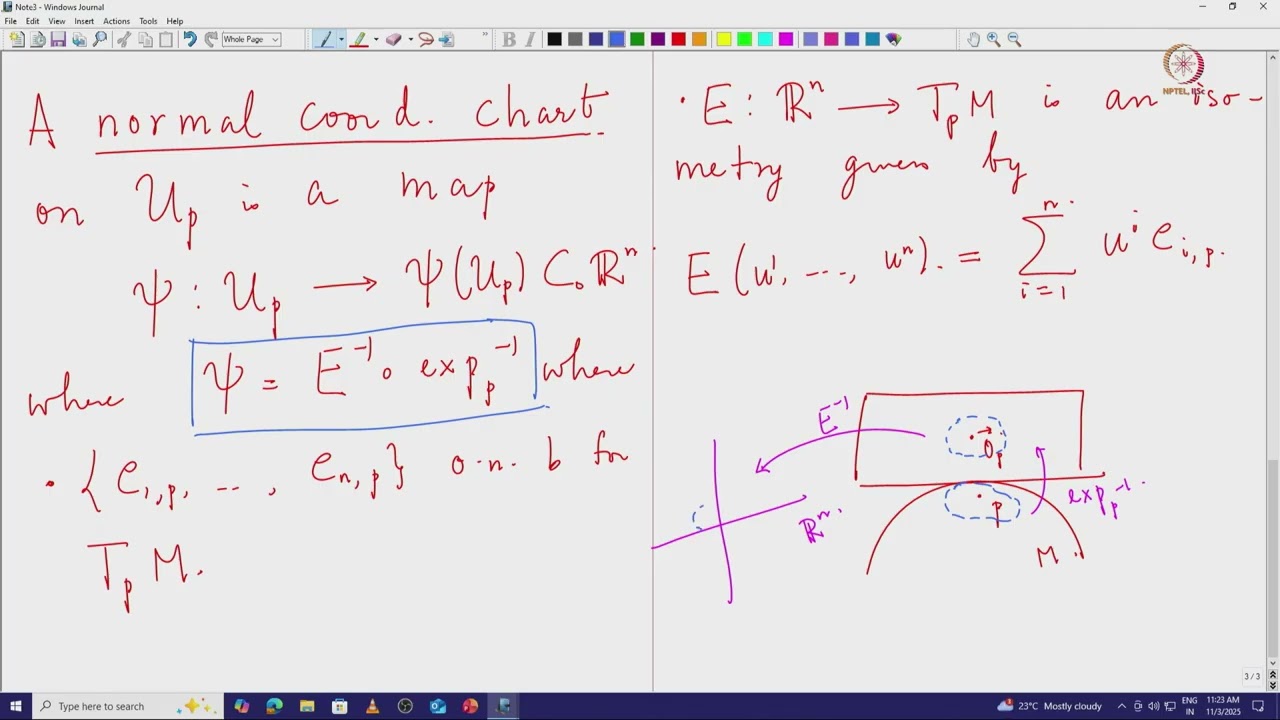 Note3 - Windows Journal
File Edit View Insert Actions Tools Help
Whole Page
NPTEL, IISc
A normal coord. chart
on U_p is a map
ψ : U_p ⟶ ψ(U_p) ⊂₀ ℝⁿ
where ψ = E⁻¹ ∘ exp_p⁻¹ where
• {e_{1,p}, ..., e_{n,p}} o.n. b for
T_p M.
• E : ℝⁿ ⟶ T_p M is an iso-
metry given by
E (u¹, ..., uⁿ). = ∑_{i=1}^{n} uⁱ e_{i,p}.
E⁻¹
0⃗_p
exp_p⁻¹
p
ℝⁿ
M
3 / 3
Type here to search
23°C Mostly cloudy
ENG
IN
11:23 AM
11/3/2025